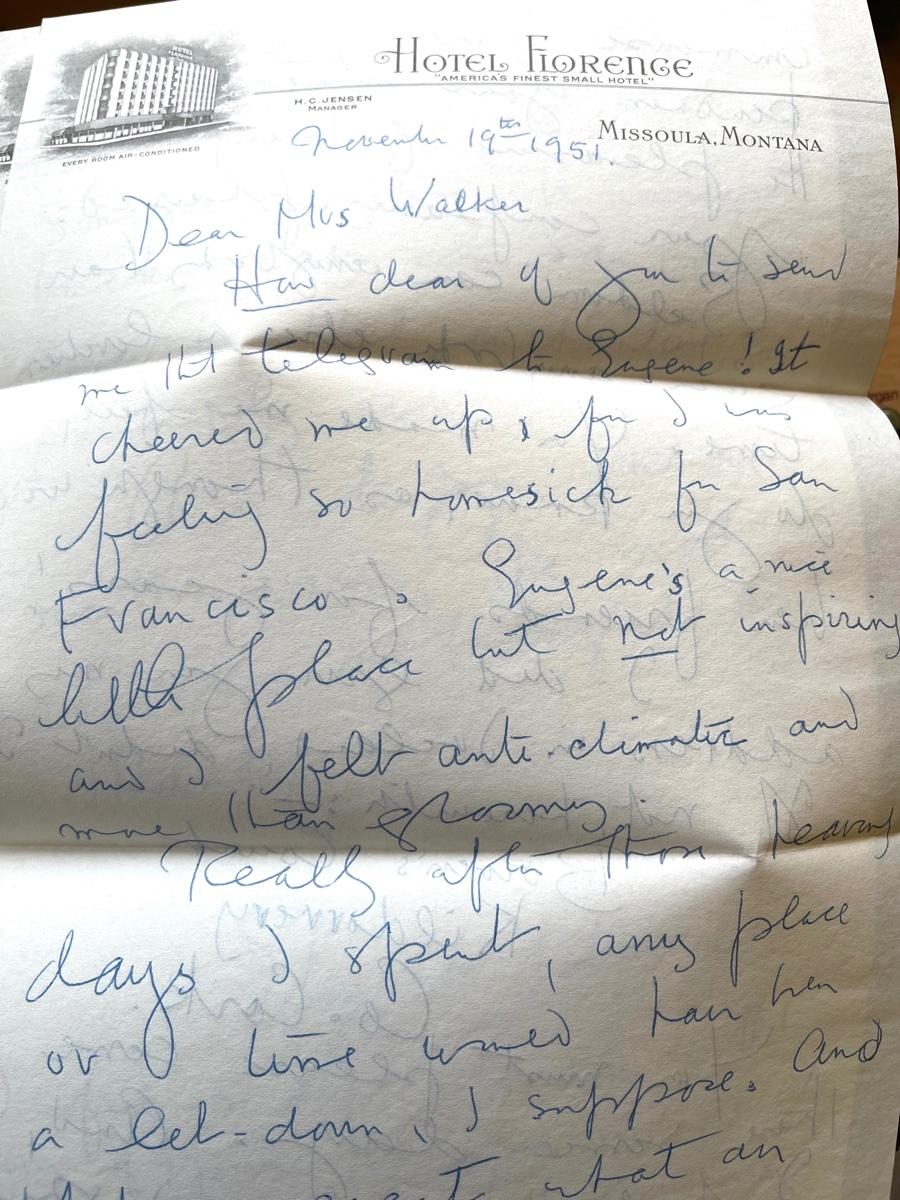 HOTEL FLORENCE
"AMERICA'S FINEST SMALL HOTEL"
H. C. JENSEN
MANAGER
MISSOULA, MONTANA
HOTEL FLORENCE
EVERY ROOM AIR-CONDITIONED
November 19th 1951.
Dear Mrs Walker
How dear of you to send
me that telegram to Eugene! It
cheered me up, for I was
feeling so homesick for San
Francisco. Eugene's a nice
little place but not inspiring
and I felt anti-climatic and
more than gloomy.
Really after those heavenly
days I spent, any place
or time would have been
a let-down, I suppose. And
what an